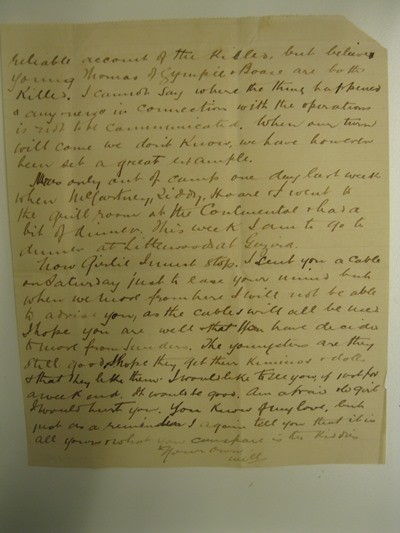 reliable account of the killed, but believe
young Thomas of Gympie & Boase are both
killed. I cannot say where the thing happened
& any news in connection with the operations
is not to be communicated. When our turn
will come we don't know, we have however
been set a great example.
only out of camp one day last week
when McCartney, Hoare & I went to
the grill room at the Continental & had a
bit of dinner. This week I am to go to
dinner at Littlewoods at Gezira.
Now Girlie I must stop. I sent you a cable
on Saturday just to ease your mind but
when we move from here I will not be able
to advise you, as the cables will all be
I hope you are well & that have decided
to move from The youngsters are they
still good, I hope they get their kimonos & dolls
& that they like them. I would like to see you if not for
a week end. It would be good. Am afraid old girl
I would hurt you. You know my love, but
just as a reminder I again tell you that it is
all yours & what you is the
Your own